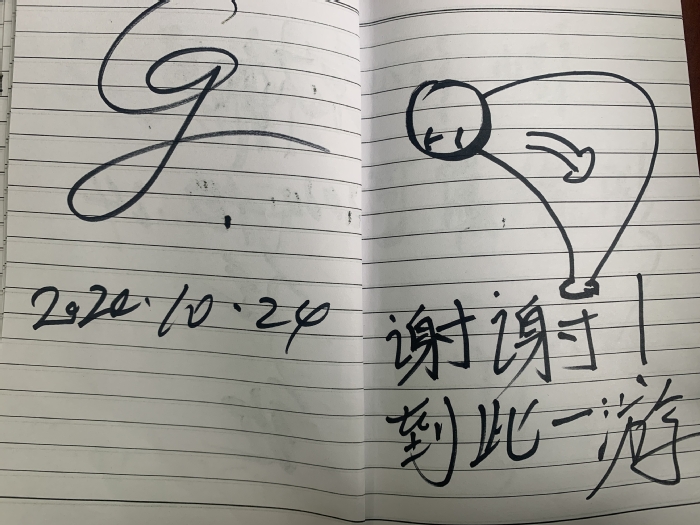 2020.10.24
谢谢！
到此一游